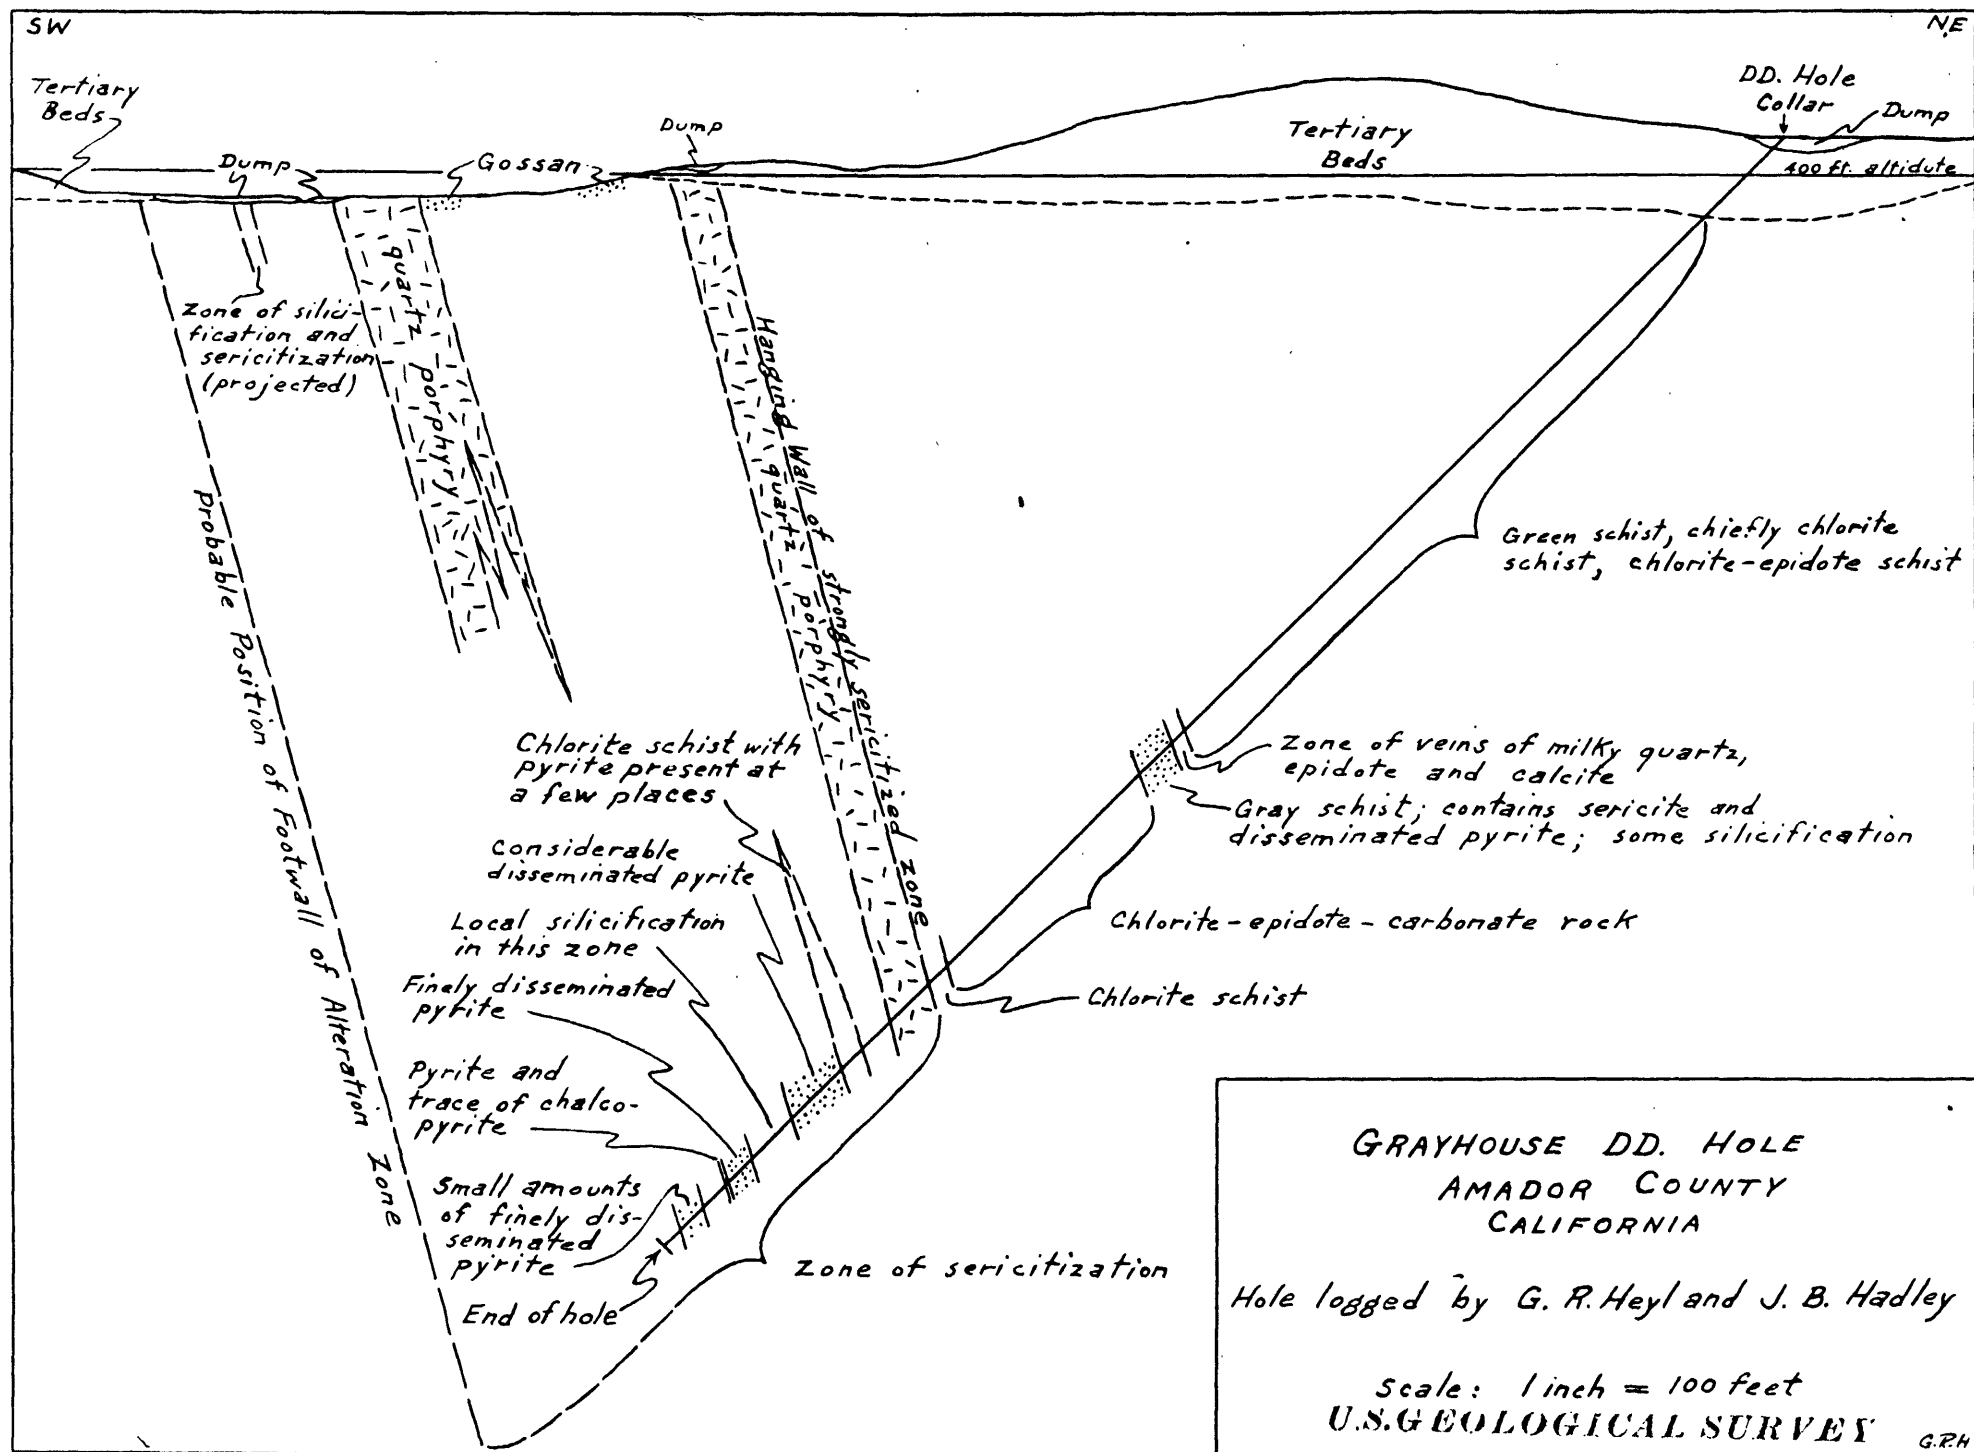 SW
NE
Tertiary
Beds
Dump
Gossan
Dump
Tertiary
Beds
DD. Hole
Collar
Dump
400 ft. altidute
Zone of silici-
fication and
sericitization
(projected)
quartz porphyry
Hanging Wall of strongly sericitized zone
quartz porphyry
Probable Position of Footwall of Alteration Zone
Green schist, chiefly chlorite
schist, chlorite-epidote schist
Zone of veins of milky quartz,
epidote and calcite
Gray schist; contains sericite and
disseminated pyrite; some silicification
Chlorite-epidote-carbonate rock
Chlorite schist
Chlorite schist with
pyrite present at
a few places
Considerable
disseminated pyrite
Local silicification
in this zone
Finely disseminated
pyrite
Pyrite and
trace of chalco-
pyrite
Small amounts
of finely dis-
seminated
pyrite
End of hole
Zone of sericitization
GRAYHOUSE DD. HOLE
AMADOR COUNTY
CALIFORNIA
Hole logged by G. R. Heyl and J. B. Hadley
Scale: 1 inch = 100 feet
U.S. GEOLOGICAL SURVEY
G.R.H